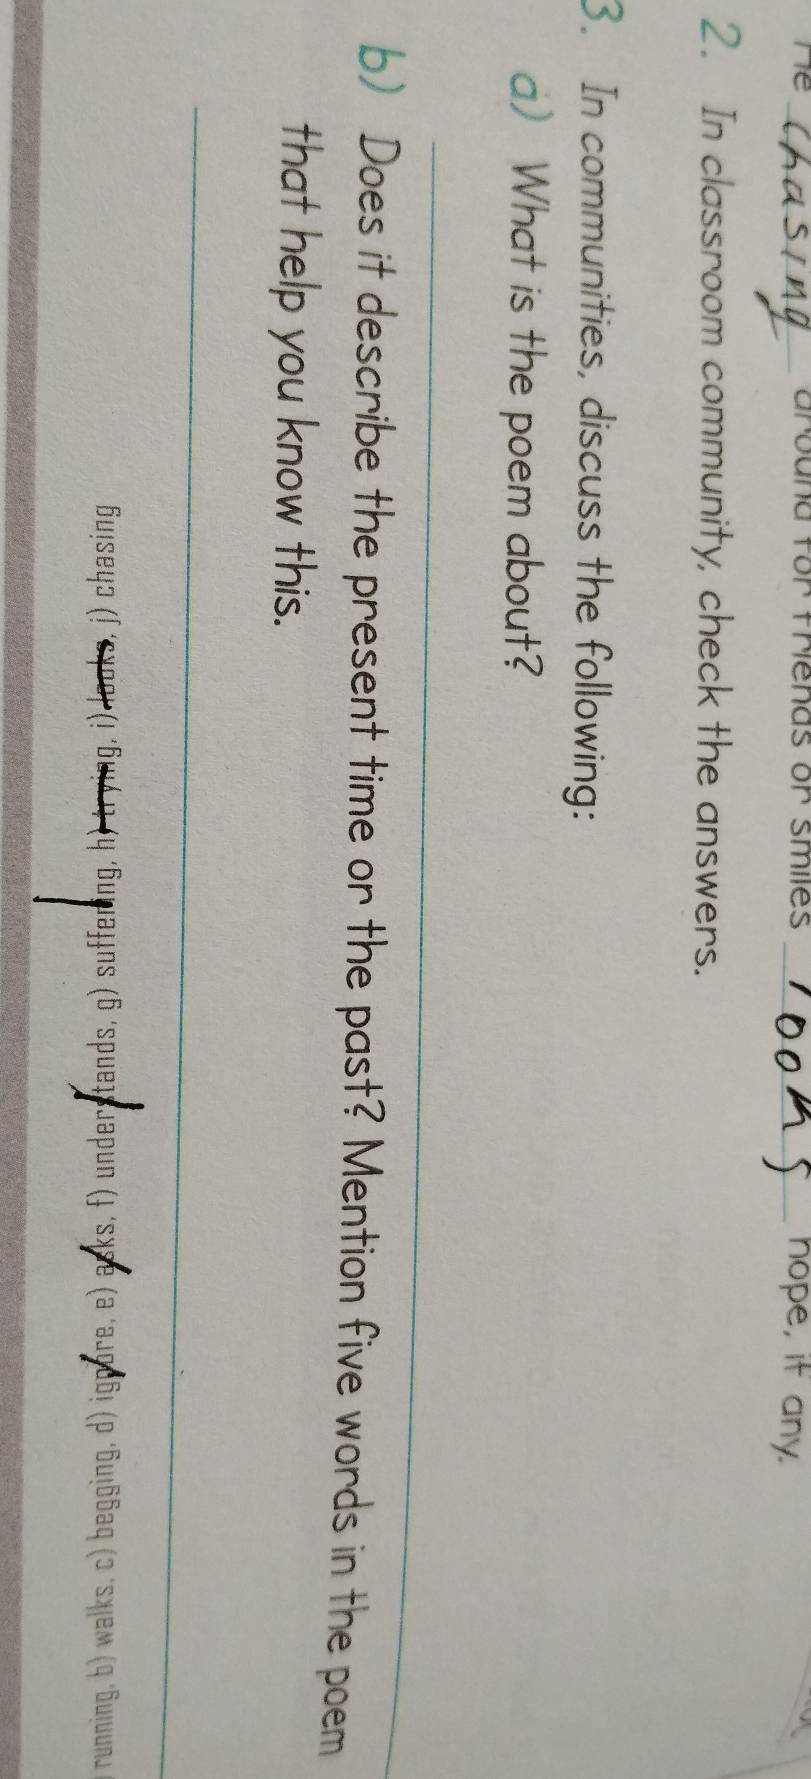 He chasing around for friends or smiles looks hope, if any.
2. In classroom community, check the answers.
3. In communities, discuss the following:
a) What is the poem about?
b) Does it describe the present time or the past? Mention five words in the poem
that help you know this.
running, b) walks, c) begging, d) ignore, e) asks, f) understands, g) suffering, h) trying, i) looks, j) chasing